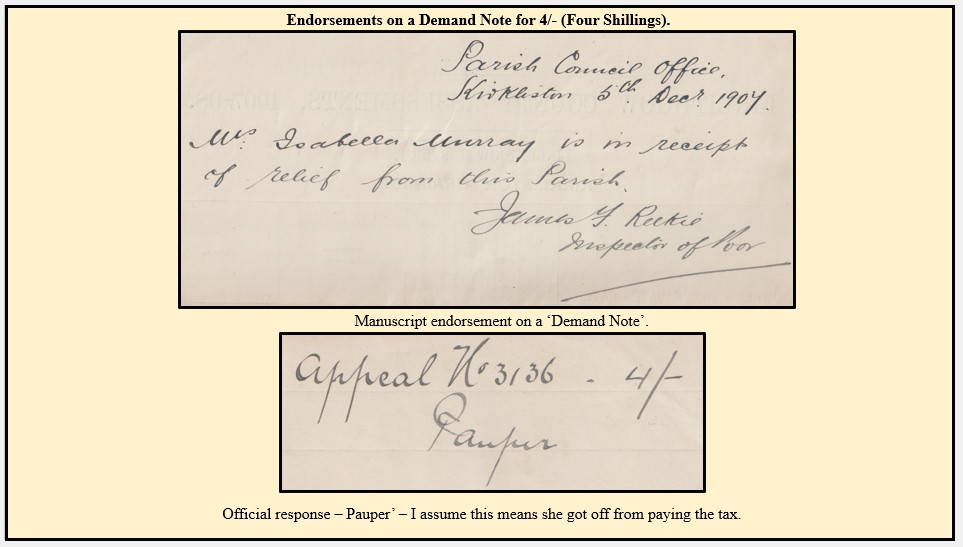 Endorsements on a Demand Note for 4/- (Four Shillings).
Parish Council Office,
Kirkliston 5th Decr 1907.
Mrs Isabella Murray is in receipt
of relief from this Parish.
James F. Reekie
Inspector of Poor
Manuscript endorsement on a ‘Demand Note’.
Appeal No 3136 - 4/-
Pauper
Official response – Pauper’ – I assume this means she got off from paying the tax.